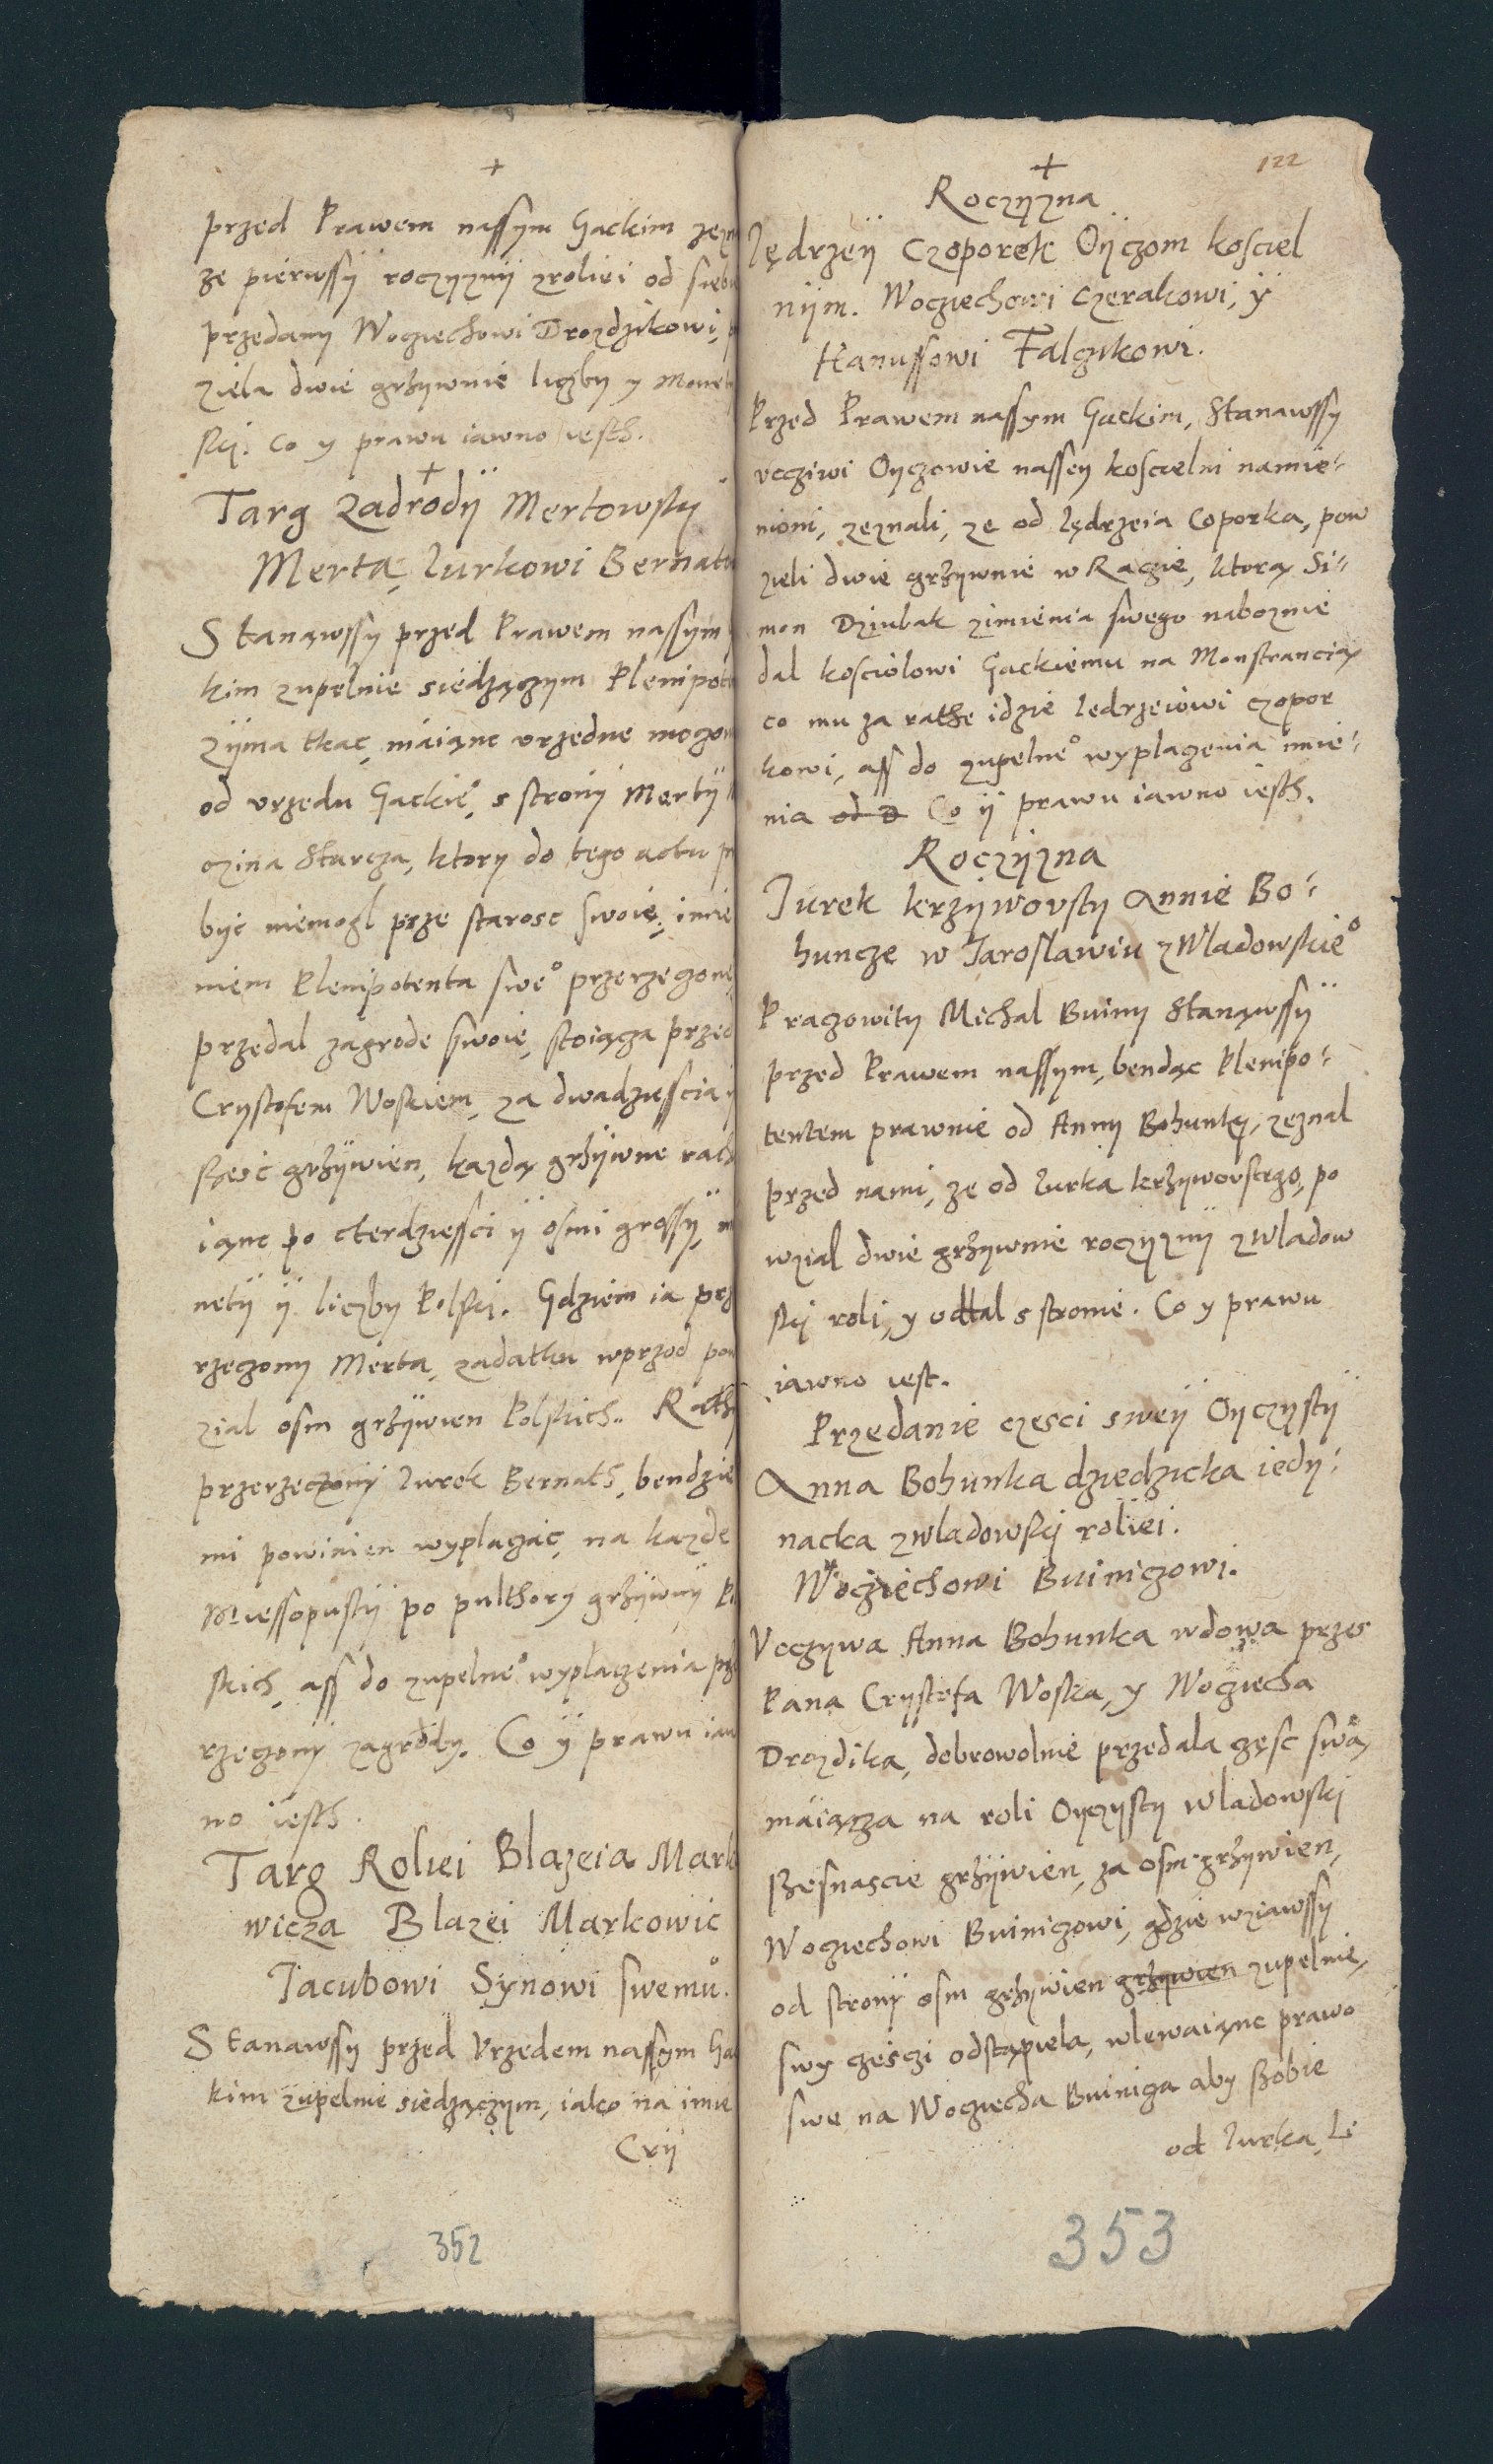 +
przed Prawem nassym Gackim zezn
ze pierwssÿ roczyznÿ zroliei od siebie
przedany Wogiechowi Drozdzikowi,
ziela dwie grzywnie ligzby y Monety
skÿ. Co y prawu iawno iesth.
+
Targ Zadrodÿ Mertowskÿ
Merta Iurkowi Bernato
Stanąwssy przed Prawem nassym
kim zupelnie siedzączym Plenipote
Zÿma tkac, máiąnc vrzedne mogon
od vrzedu Gackie°, s stronÿ Mertÿ
ozina Starcza, ktory do tego actu pr
byc niemogl prze starosc swoię, imie
niem Plenipotenta swe° przerzegone
przedal zagrode swoię, stoiącza przed
Crystofem Woskiem, za dwadziesscia ÿ
ssesc grzÿwien, kazdą grzÿwne rach
iąnc po cterdziessci ÿ osmi grossÿ, m
netÿ ÿ liczby Polskÿ. Gdziem ia prze
rzegony Merta, zadatku wprzod pow
zial osm grzÿwien Polskich. Rathi
przerzeczonÿ Iurek Bernats, bendzie
mi powinien wyplagac, na kazde
Miessopustÿ po pulthory grzÿwnÿ Po
skich, ass do zupelne° wyplaczenia prze
rzegonÿ zagrody. Co ÿ prawu iaw
no iesth.
Targ Roliei Blazeia Mark
wicza Blazei Markowic
Iacubowi Synowi swemu.
Stanawssy przed Vrzedem nassym Ga
kim zupelnie siedzączym, iako na imie
Crÿ
352
122
+
Roczÿzna
Iędrzeÿ Czoporek Oÿczom koscel
nÿm. Wogiechowi Czerakowi, ÿ
Hanussowi Falczikowi.
Przed Prawem nassym Gackim, Stanawssy
vcgiwi Oyczowie nassey koscielni namie-
nioni, zeznali, ze od Iędrzeia Coporka, pow
zieli dwie grzÿwnie w Ragie, ktorą Si-
mon Dziubak zimienia swego naboznie
dal kosciolowi Gackiemu na Monstrancią
co mu za rathe idzie Iedrzeiowi czopor
kowi, ass do zupelne° wyplagenia imie-
nia od D Co ÿ prawu iawno iesth.
Roczÿzna
Iurek krzÿwovsky Annie Bo-
huncze w Iaroslawiu z Wladowskie°
Pragowity Michal Buiny Stanąwssÿ
przed Prawem nassym, bendąc Plenipo-
tentem prawnie od Anny Bohunkÿ, zeznal
przed nami, ze od Iurka krzywovskego, po
wzial dwie grzÿwnie roczyznÿ z Wladow
skÿ roli, y oddal s stronie. Co y prawu
iawno iest.
Przedanie czesci sweÿ Oyczystÿ
Anna Bohunka dziedzicka iedÿ-
nacka zwladowskÿ roliei.
Wogiechowi Buinigowi.
Vcgywa Anna Bohunka wdowa przes
Pana Crÿstofa Woska, y Wogiecha
Drozdika, dobrowolnie przedala gęsc swą,
máiącza na roli Oyczysty wladowski
szesnascie grzÿwien, za osm grzÿwien,
Wogiechowi Buinigowi, gdzie wziawssy
od stronÿ osm grzÿwien grzÿwien zupelnie,
swy gesczi odstąpiela, wlewaiąnc prawo
swe na Wogiecha Buiniga aby szobie
od Iurka Li
353